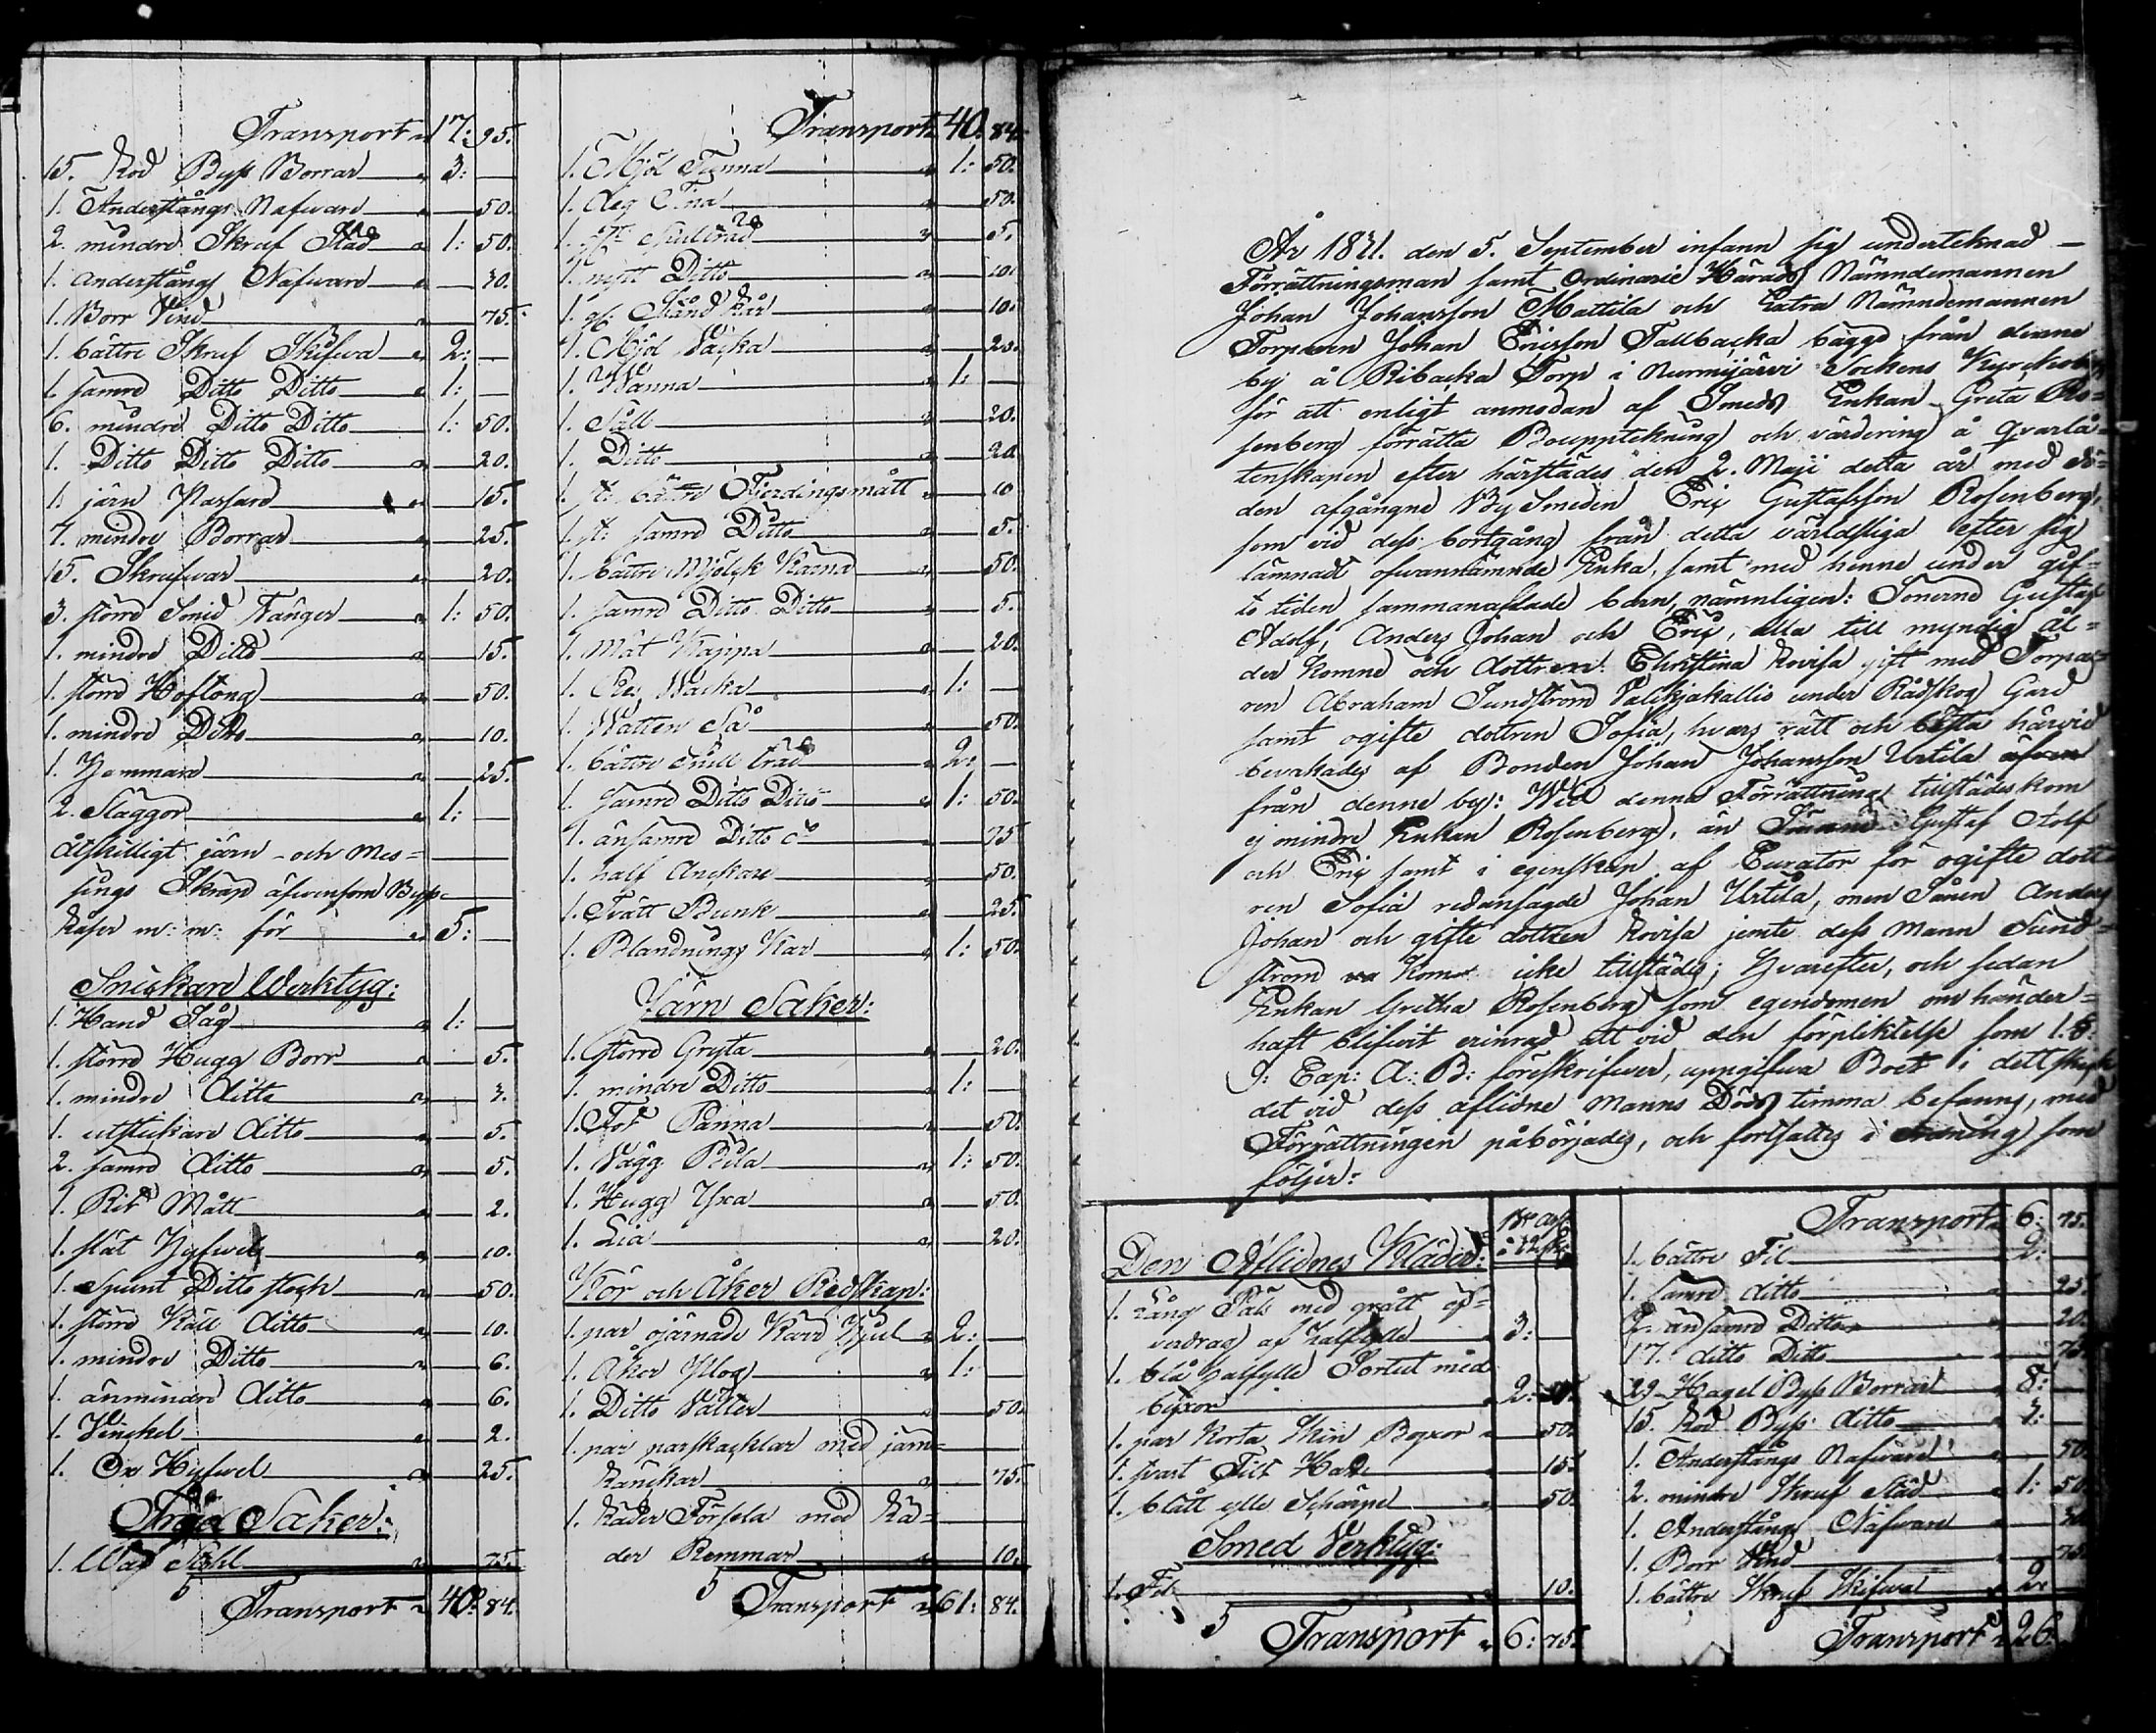 Transport " 17: 95.
15. Rod Byss Borrar " 3: —
1. Anderstångs Nafvare " — 50.
2. mindre Skruf Städ " 1: 50.
1. anderstångs Nafvare " — 30.
1. Borr Vind " — 75.
1. bättre Skruf Skifva " 2: —
1. sämre Ditto Ditto " 1: —
6. mindre Ditto Ditto " 1: 50.
1. Ditto Ditto Ditto " — 20.
1. järn Passare " — 15.
7. mindre Borrar " — 25.
15. Skrufvar " — 20.
3. större Smid Tänger " 1: 50.
1. mindre Ditto " — 15.
1. större Hoftång " — 50.
1. mindre Ditto " — 10.
1. Hammare " — 25.
2. Släggor " 1: —
Åtskilligt järn- och Mes=
sings Skrap äfvensom Byss
m: m: för " 5: —
Snickare Werktyg:
1. Hand Såg " 1: —
1. större Hugg Borr " — 5.
1. mindre ditto " — 3.
1. utstickare ditto " — 5.
2. sämre ditto " — 5.
1. Rit Mått " — 2.
1. slät Hyfvel " — 10.
1. Spunt Ditto stock " — 50.
1. större Käll ditto " — 10.
1. mindre Ditto " — 6.
1. änmindre ditto " — 6.
1. Vinckel " — 2.
1. Ox Hyfvel " — 25.
Träd Saker:
1. Wäf Stohl " — 75.
Transport " 40: 84.
Transport " 40: 84.
1. Mjöl Tunna " 1: 50.
1. deg Tina " — 50.
1. Spillbräd " — 5.
1. nytt Ditto " — 10.
1. Hand Kar " — 10.
1. Mjöl Wacka " — 20.
1. Wanna " 1: —
1. Såll " — 20.
1. Ditto " — 20
1. st: bättre Fierdingsmått " — 10
1. st: sämre Ditto " — 5.
1. bättre Mjölck Kärna " — 50.
1. sämre Ditto Ditto " — 5.
1. Mat Kappa " — 20.
1. Wacka " 1: —
1. Watten Så " — 50.
1. bättre Snäll träd " 2: —
1. sämre Ditto Ditto " 1: 50.
1. änsämre Ditto do " — 75
1. half Anckare " — 50.
1. Tvätt Bunk " — 25.
1. Blandnings Kar " 1: 50.
Järn Saker:
1. större Gryta " — 20.
1. mindre Ditto " 1: —
1. Fot Panna " — 50.
1. Vägg Bila " 1: 50.
1. Hugg Yxa " — 50.
1. Lia " — 20.
Kör och Åker Redskap:
1. par ojärnade Kärr Hjul " 2: —
1. Åker Plog " 1: —
1. Ditto Vält " — 50.
1. par parskacklar med järn=
länckar " — 75.
1. Räder Försela med Rä=
der Remmar " — 10.
Transport " 61: 84.
År 1831. den 5. September infann sig undertecknad —
Förrättningsman samt Ordinarie Härads Nämndemannen
Johan Johansson Mattila och Extra Nämndemannen
Torparen Johan Ericsson Tallbacka bägge från denne
by å Ribacka Torp i Nurmijärvi Sockens Kyrckoby
för att enligt anmodan af Smeds Enkan Greta Ro=
senberg förrätta Bouppteckning och värdering å qvarlå=
tenskapen efter härstädes den 2. Maji detta år med dö=
den afgångne By Smeden Eric Gustafsson Rosenberg,
som vid dess bortgång från detta världsliga efter sig
lämnadt ofvannämnde Enka, samt med henne under gif=
to tiden sammanaflade barn, nämnligen: Sönerne Gustaf
Adolf, Anders Johan och Eric, alla till myndig ål=
der komne och dottren Christina Lovisa gift med Torpa=
ren Abraham Sundström Valckjakallio under Rådskog Gård
samt ogifte dottren Sofia, hvars rätt och bästa härvid
bevakades af Bonden Johan Johansson Urtila äfven
från denne by: Wid denna Förrättning tillstädeskom
ej mindre Enkan Rosenberg, än Sönerne Gustaf Adolf
och Eric samt i egenskap af Curator för ogifte dott
ren Sofia redansagde Johan Urtila, men Sånen Anders
Johan och gifte dottren Lovisa jemte dess Mann Sund=
ström kom icke tillstädes; Hvarefter, och sedan
Enkan Gretha Rosenberg som egendomen om händer=
haft blifvit erinrad att vid den förpliktelse som 1. §.
9: Cap: Ä: B: föreskrifver, uppgifva Boet i dett skick
det vid dess aflidne Manns Döds timma befanns, med
Förrättningen påbörjades, och fortsattes i ordning som
följer:
Den Aflidnes Kläder:
1. Lång Päls med grått öf=
verdrag af halfylle " 3: —
1. blå halfylle Sortut med
byxor " 2: 50.
1. par korta Skin Byxor " 50.
1. svart Filt Hatt " 15.
1. blått ylle Schärpe " 50.
Smed Verktyg:
1. Fil " 10.
Transport " 6: 75.
Transport " 6: 75.
1. bättre Fil " 2: —
1. sämre ditto " 25.
2. änsämre Ditto " 20.
17. ditto Ditto " 75.
29. Hagel Byss Borrar " 8: —
15. Rod Byss ditto " 3: —
1. Anderstångs Nafvare " 50.
2. mindre Skruf städ " 1: 50.
1. Anderstångs Nafvare " 30
1. Borr Vind " 75.
1. bättre Skruf Skifva " 2.
Transport " 26.